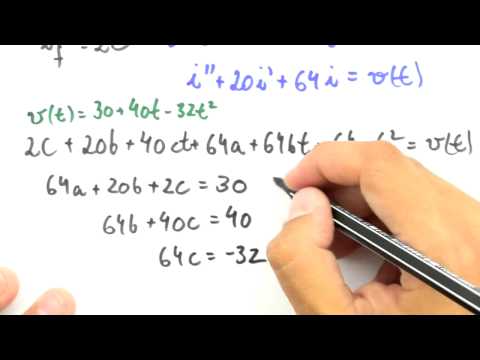 = 2C
i'' + 20i' + 64i = v(t)
v(t) = 30 + 40t - 32t²
2C + 20b + 40ct + 64a + 64bt = v(t)
64a + 20b + 2c = 30
64b + 40c = 40
64c = -32